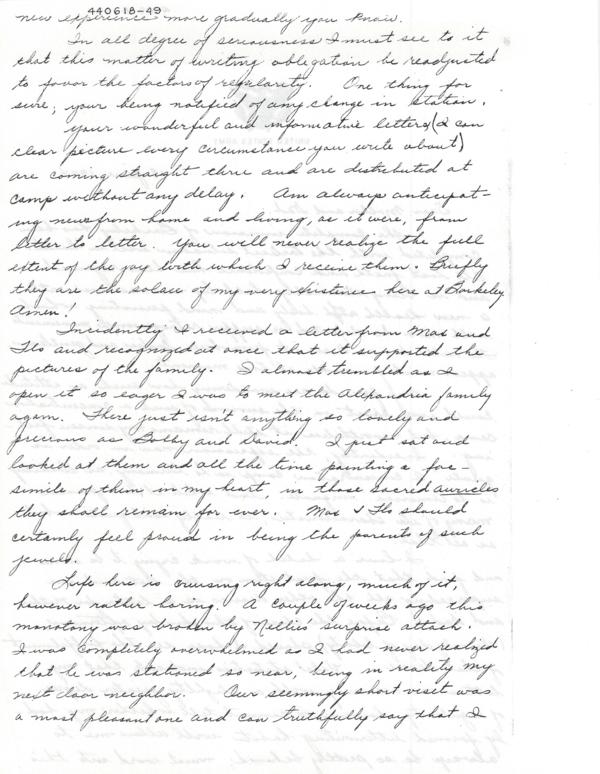 440618-49
new experience more gradually you know.
In all degree of seriousness I must see to it
that this matter of writing obligation be readjusted
to favor the factors of regularity. One thing for
sure; your being notified of any change in station.
Your wonderful and informative letters (I can
clear picture every circumstance you write about)
are coming straight thru and are distributed at
camp without any delay. Am always anticipat-
ing news from home and living, as it were, from
letter to letter. You will never realize the full
extent of the joy with which I receive them. Briefly
they are the solace of my very existence here at Barkeley
Amen!
Incidently I received a letter from Max and
Flo and recognized at once that it supported the
pictures of the family. I almost trembled as I
open it so eager I was to meet the Alexandria family
again. There just isn't anything so lovely and
precious as Bobby and David. I just sat and
looked at them and all the time painting a fac-
simile of them in my heart, in those sacred auricles
they shall remain for ever. Max & Flo should
certainly feel proud in being the parents of such
jewels.
Life here is cruising right along, much of it,
however rather boring. A couple of weeks ago this
monotony was broken by Nellis' surprise attack.
I was completely overwhelmed as I had never realized
that he was stationed so near, being in reality my
next door neighbor. Our seemingly short visit was
a most pleasant one and can truthfully say that I